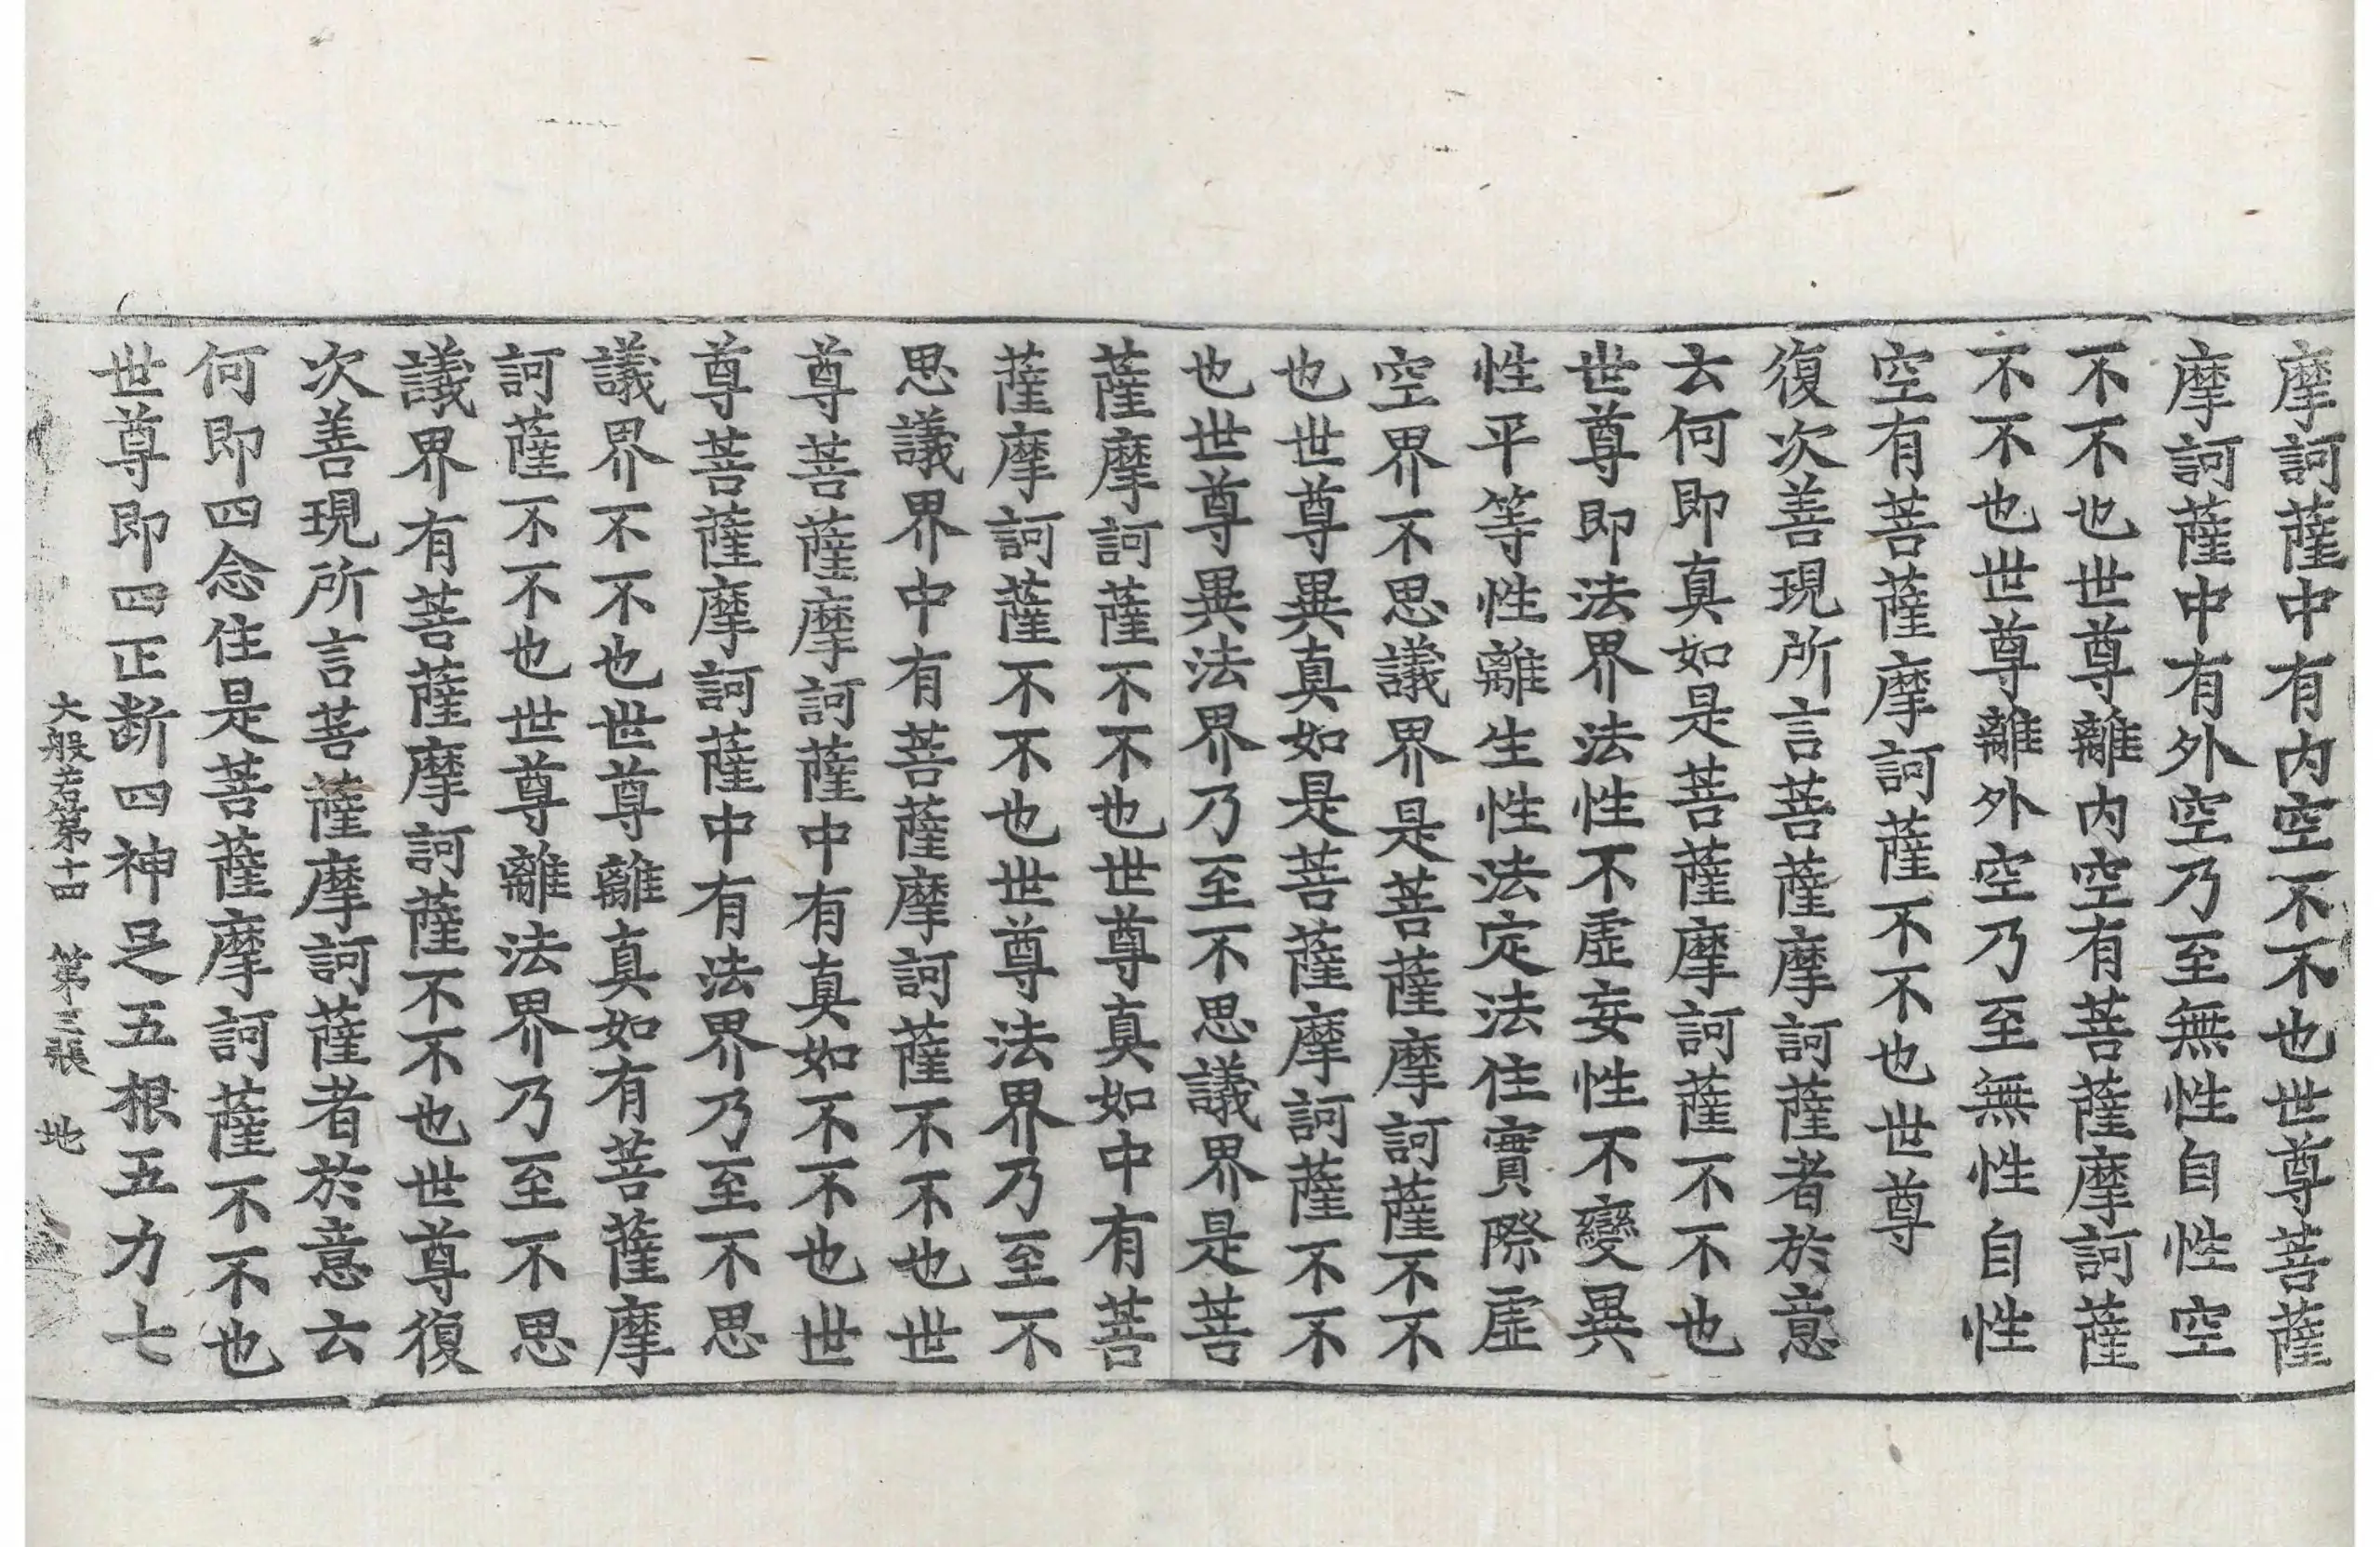 摩訶薩中有内空不不也世尊菩薩
摩訶薩中有外空乃至無性自性空
不不也世尊離内空有菩薩摩訶薩
不不也世尊離外空乃至無性自性
空有菩薩摩訶薩不不也世尊
復次善現所言菩薩摩訶薩者於意
云何即真如是菩薩摩訶薩不不也
世尊即法界法性不虛妄性不變異
性平等性離生性法定法住實際虛
空界不思議界是菩薩摩訶薩不不
也世尊異真如是菩薩摩訶薩不不
也世尊異法界乃至不思議界是菩
薩摩訶薩不不也世尊真如中有菩
薩摩訶薩不不也世尊法界乃至不
思議界中有菩薩摩訶薩不不也世
尊菩薩摩訶薩中有真如不不也世
尊菩薩摩訶薩中有法界乃至不思
議界不不也世尊離真如有菩薩摩
訶薩不不也世尊離法界乃至不思
議界有菩薩摩訶薩不不也世尊復
次善現所言菩薩摩訶薩者於意云
何即四念住是菩薩摩訶薩不不也
世尊即四正斷四神足五根五力七
大般若第十四 第十三張 地